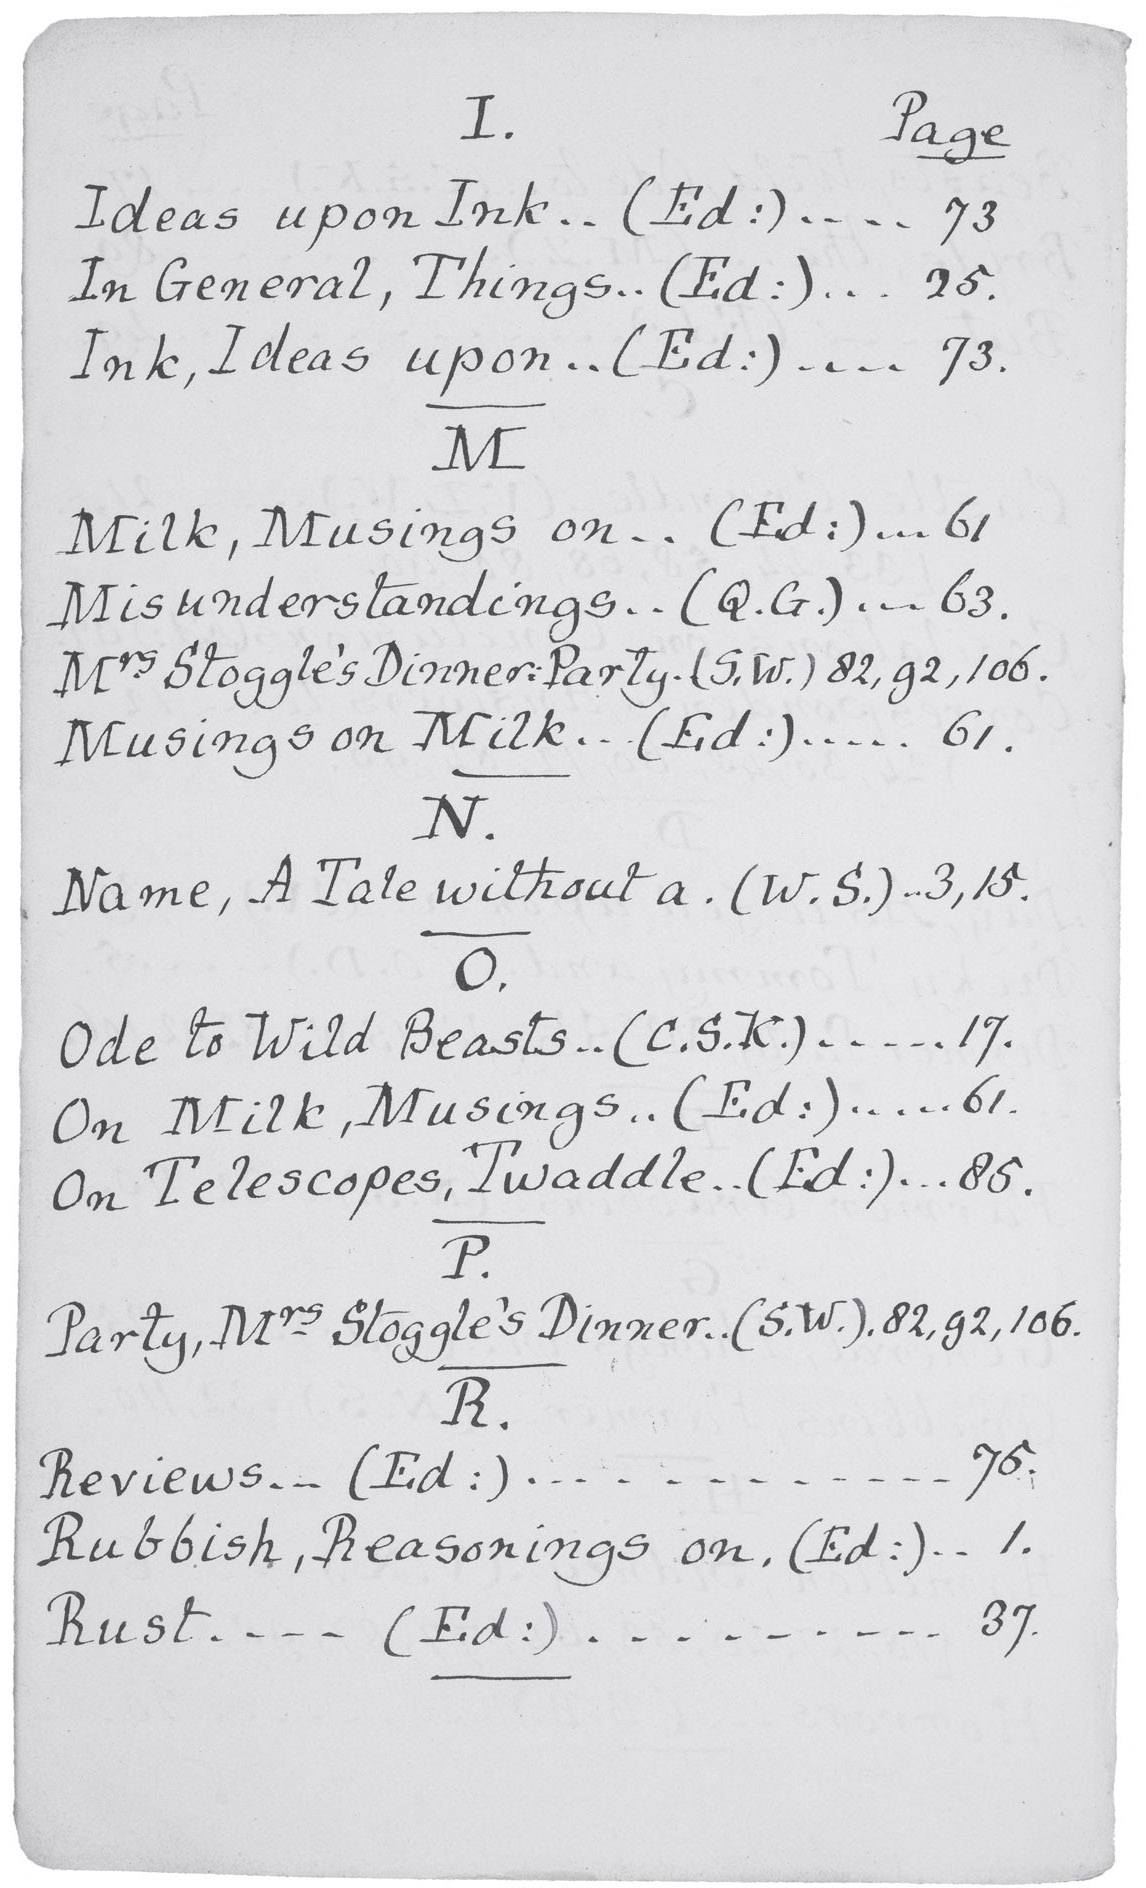 I. Page
Ideas upon Ink.. (Ed:).... 73
In General, Things.. (Ed:)... 25.
Ink, Ideas upon.. (Ed:).... 73.
M
Milk, Musings on... (Ed:)... 61
Misunderstandings.. (Q.G.)... 63.
Mrs Stoggle's Dinner=Party. (S.W.) 82, 92, 106.
Musings on Milk... (Ed:)..... 61.
N.
Name, A Tale without a. (W.S.)..3, 15.
O.
Ode to Wild Beasts.. (C.S.K.)......17.
On Milk, Musings.. (Ed:).....61.
On Telescopes, Twaddle.. (Ed:)...85.
P.
Party, Mrs Stoggle's Dinner.. (S.W.). 82, 92, 106.
R.
Reviews... (Ed:)............. 75.
Rubbish, Reasonings on. (Ed:)... 1.
Rust..... (Ed:).......... 37.